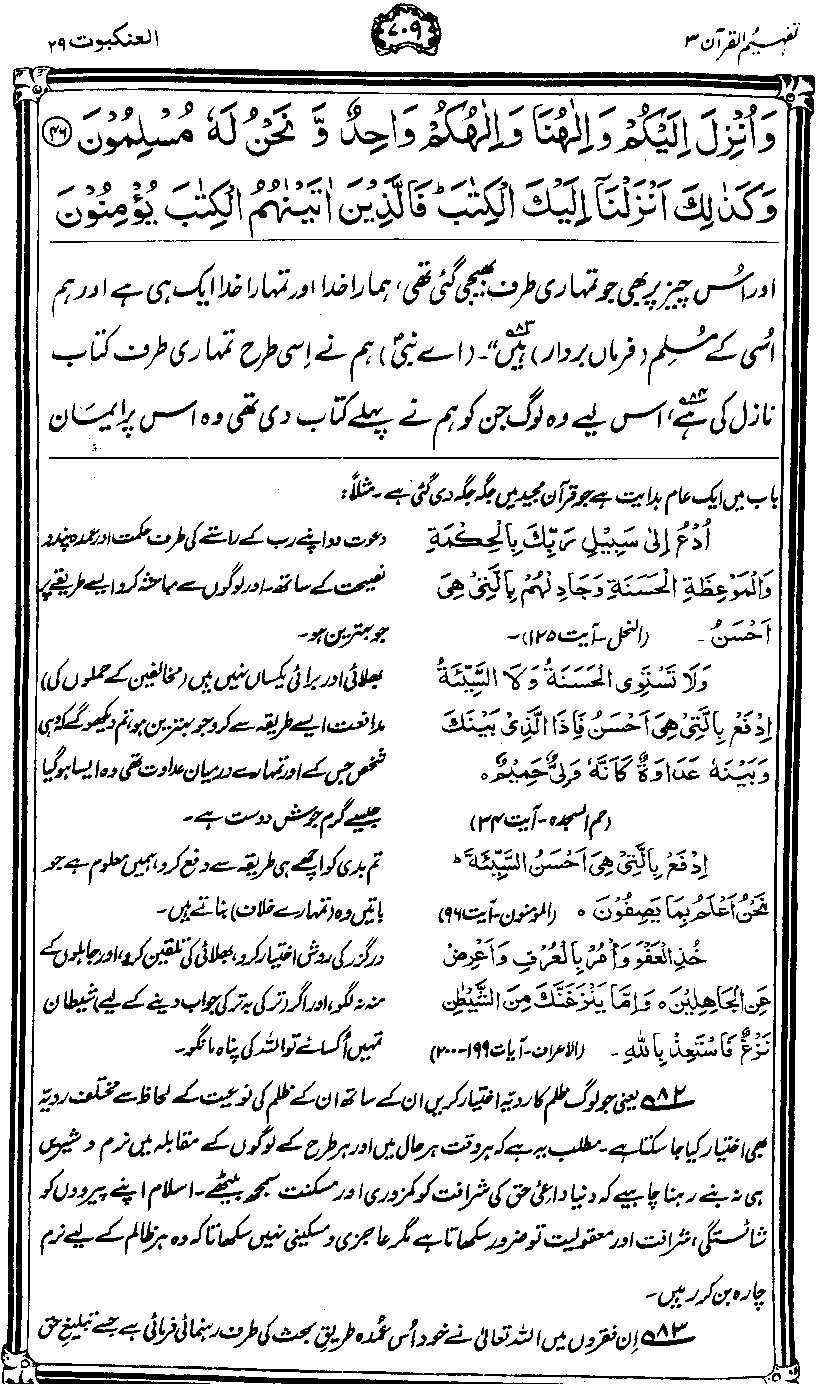 تفہیم القرآن ۳
۷۰۹
العنکبوت ۲۹
وَاُنْزِلَ اِلَيْكُمْ وَاِلٰهُنَا وَاِلٰهُكُمْ وَاحِدٌ وَّ نَحْنُ لَهٗ مُسْلِمُوْنَ ﴿۴۶﴾
وَكَذٰلِكَ اَنْزَلْنَاۤ اِلَيْكَ الْكِتٰبَ ؕ فَالَّذِيْنَ اٰتَيْنٰهُمُ الْكِتٰبَ يُؤْمِنُوْنَ
اور اُس چیز پر بھی جو تمہاری طرف بھیجی گئی تھی، ہمارا خدا اور تمہارا خدا ایک ہی ہے اور ہم
اُسی کے مُسلِم (فرماں بردار) ہیں۸۳"۔ (اے نبیؐ) ہم نے اِسی طرح تمہاری طرف کتاب
نازل کی ہے۸۴، اس لیے وہ لوگ جن کو ہم نے پہلے کتاب دی تھی وہ اس پر ایمان
باب میں ایک عام ہدایت ہے جو قرآن مجید میں جگہ جگہ دی گئی ہے۔ مثلاً:
اُدْعُ اِلٰى سَبِيْلِ رَبِّكَ بِالْحِكْمَةِ
وَالْمَوْعِظَةِ الْحَسَنَةِ وَجَادِلْهُمْ بِالَّتِيْ هِيَ
اَحْسَنُ۔ (النحل۔آیت ۱۲۵)۔
دعوت دو اپنے رب کے راستے کی طرف حکمت اور عمدہ پند و
نصیحت کے ساتھ۔ اور لوگوں سے مباحثہ کرو ایسے طریقے پر
جو بہترین ہو۔
وَلَا تَسْتَوِى الْحَسَنَةُ وَلَا السَّيِّئَةُ
اِدْفَعْ بِالَّتِيْ هِيَ اَحْسَنُ فَاِذَا الَّذِيْ بَيْنَكَ
وَبَيْنَهٗ عَدَاوَةٌ كَاَنَّهٗ وَلِيٌّ حَمِيْمٌ ہ
(حم السجدہ۔آیت ۳۴)
بھلائی اور برائی یکساں نہیں ہیں (مخالفین کے حملوں کی)
مدافعت ایسے طریقہ سے کرو جو بہترین ہو، تم دیکھو گے کہ وہی
شخص جس کے اور تمہارے درمیان عداوت تھی وہ ایسا ہو گیا
جیسے گرم جوش دوست ہے۔
اِدْفَعْ بِالَّتِيْ هِيَ اَحْسَنُ السَّيِّئَةَ ؕ
نَحْنُ اَعْلَمُ بِمَا يَصِفُوْنَ ہ (المومنون۔آیت ۹۶)
تم بدی کو اچھے ہی طریقہ سے دفع کرو، ہمیں معلوم ہے جو
باتیں وہ (تمہارے خلاف) بناتے ہیں۔
خُذِ الْعَفْوَ وَاْمُرْ بِالْعُرْفِ وَاَعْرِضْ
عَنِ الْجَاهِلِيْنَ ہ وَاِمَّا يَنْزَغَنَّكَ مِنَ الشَّيْطٰنِ
نَزْغٌ فَاسْتَعِذْ بِاللهِ۔ (الاعراف۔آیات ۱۹۹-۲۰۰)
درگزر کی روش اختیار کرو، بھلائی کی تلقین کرو، اور جاہلوں کے
منہ نہ لگو، اور اگر (ترکی بہ ترکی جواب دینے کے لیے) شیطان
تمہیں اُکسائے تو اللہ کی پناہ مانگو۔
۸۲ یعنی جو لوگ ظلم کا رویّہ اختیار کریں ان کے ساتھ ان کے ظلم کی نوعیت کے لحاظ سے مختلف رویّہ
بھی اختیار کیا جا سکتا ہے۔ مطلب یہ ہے کہ ہر وقت ہر حال میں اور ہر طرح کے لوگوں کے مقابلہ میں نرم و شیریں
ہی نہ بنے رہنا چاہیے کہ دنیا داعیٔ حق کی شرافت کو کمزوری اور مسکنت سمجھ بیٹھے۔ اسلام اپنے پیرووں کو
شائستگی، شرافت اور معقولیت تو ضرور سکھاتا ہے مگر عاجزی و مسکینی نہیں سکھاتا کہ وہ ہر ظالم کے لیے نرم
چارہ بن کر رہیں۔
۸۳ اِن فقروں میں اللہ تعالیٰ نے خود اُس عُمدہ طریقِ بحث کی طرف رہنمائی فرمائی ہے جسے تبلیغِ حق